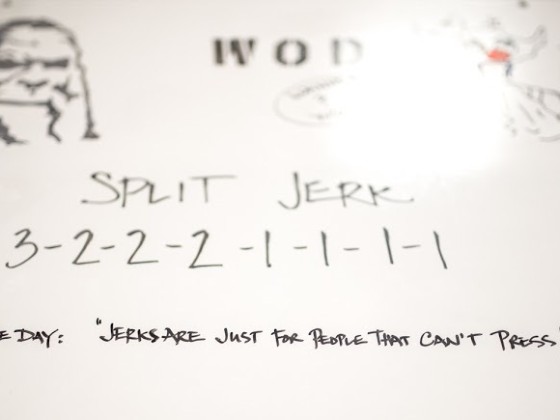 WOD
SPLIT JERK
3-2-2-2-1-1-1-1
E DAY: "JERKS ARE JUST FOR PEOPLE THAT CAN'T PRESS"